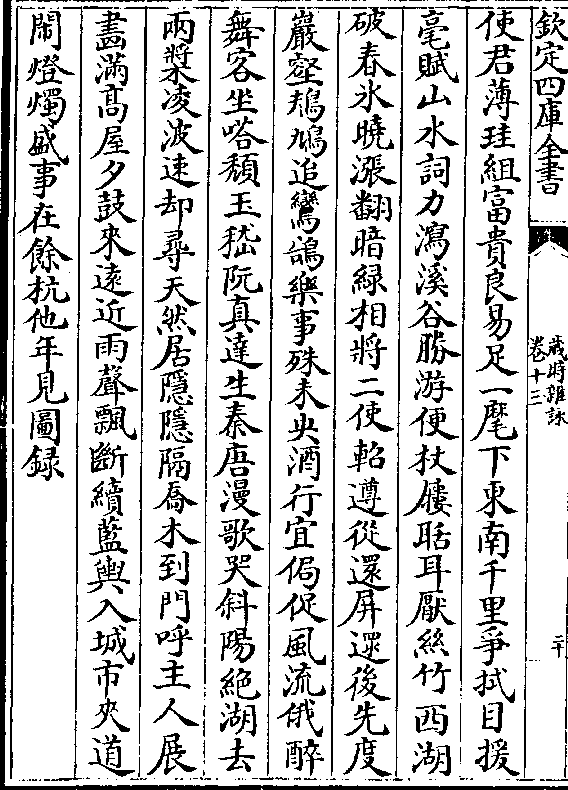 欽定四庫全書
歲時雜詠
卷十三
二十
使君薄珪組富貴良易足一麾下東南千里爭拭目援
毫賦山水詞力瀉溪谷勝游便杖屨聒耳厭絲竹西湖
破春氷曉漲翻暗緑相將二使軺遵從還屏還後先度
巖壑鵶鳩追鸞鵠樂事殊未央酒行宜侷促風流俄醉
舞客坐嗒頽玉嵇阮真達生秦唐漫歌哭斜陽絶湖去
兩槳凌波速却尋天然居隱隱隔喬木到門呼主人展
畵滿髙屋夕鼓來逺近雨聲飄斷續藍輿入城市夾道
閙燈燭盛事在餘杭他年見圖録